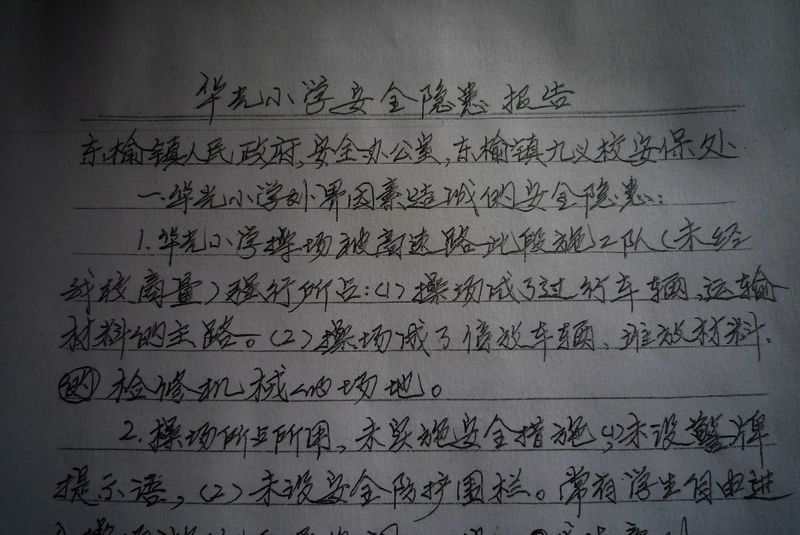 华光小学安全隐患报告
东榆镇人民政府,安全办公室,东榆镇九义校安保处
一.华光小学外界因素造成的安全隐患:
1.华光小学操场被高速路此段施工队(未经
我校商量)强行所占:(1)操场成了过行车辆、运输
材料的主路。(2)操场成了停放车辆、堆放材料.
检修机械的场地。
2.操场所占所用,未实施安全措施,(1)未设警牌
提示语,(2)未设安全防护围栏。常有学生自由进